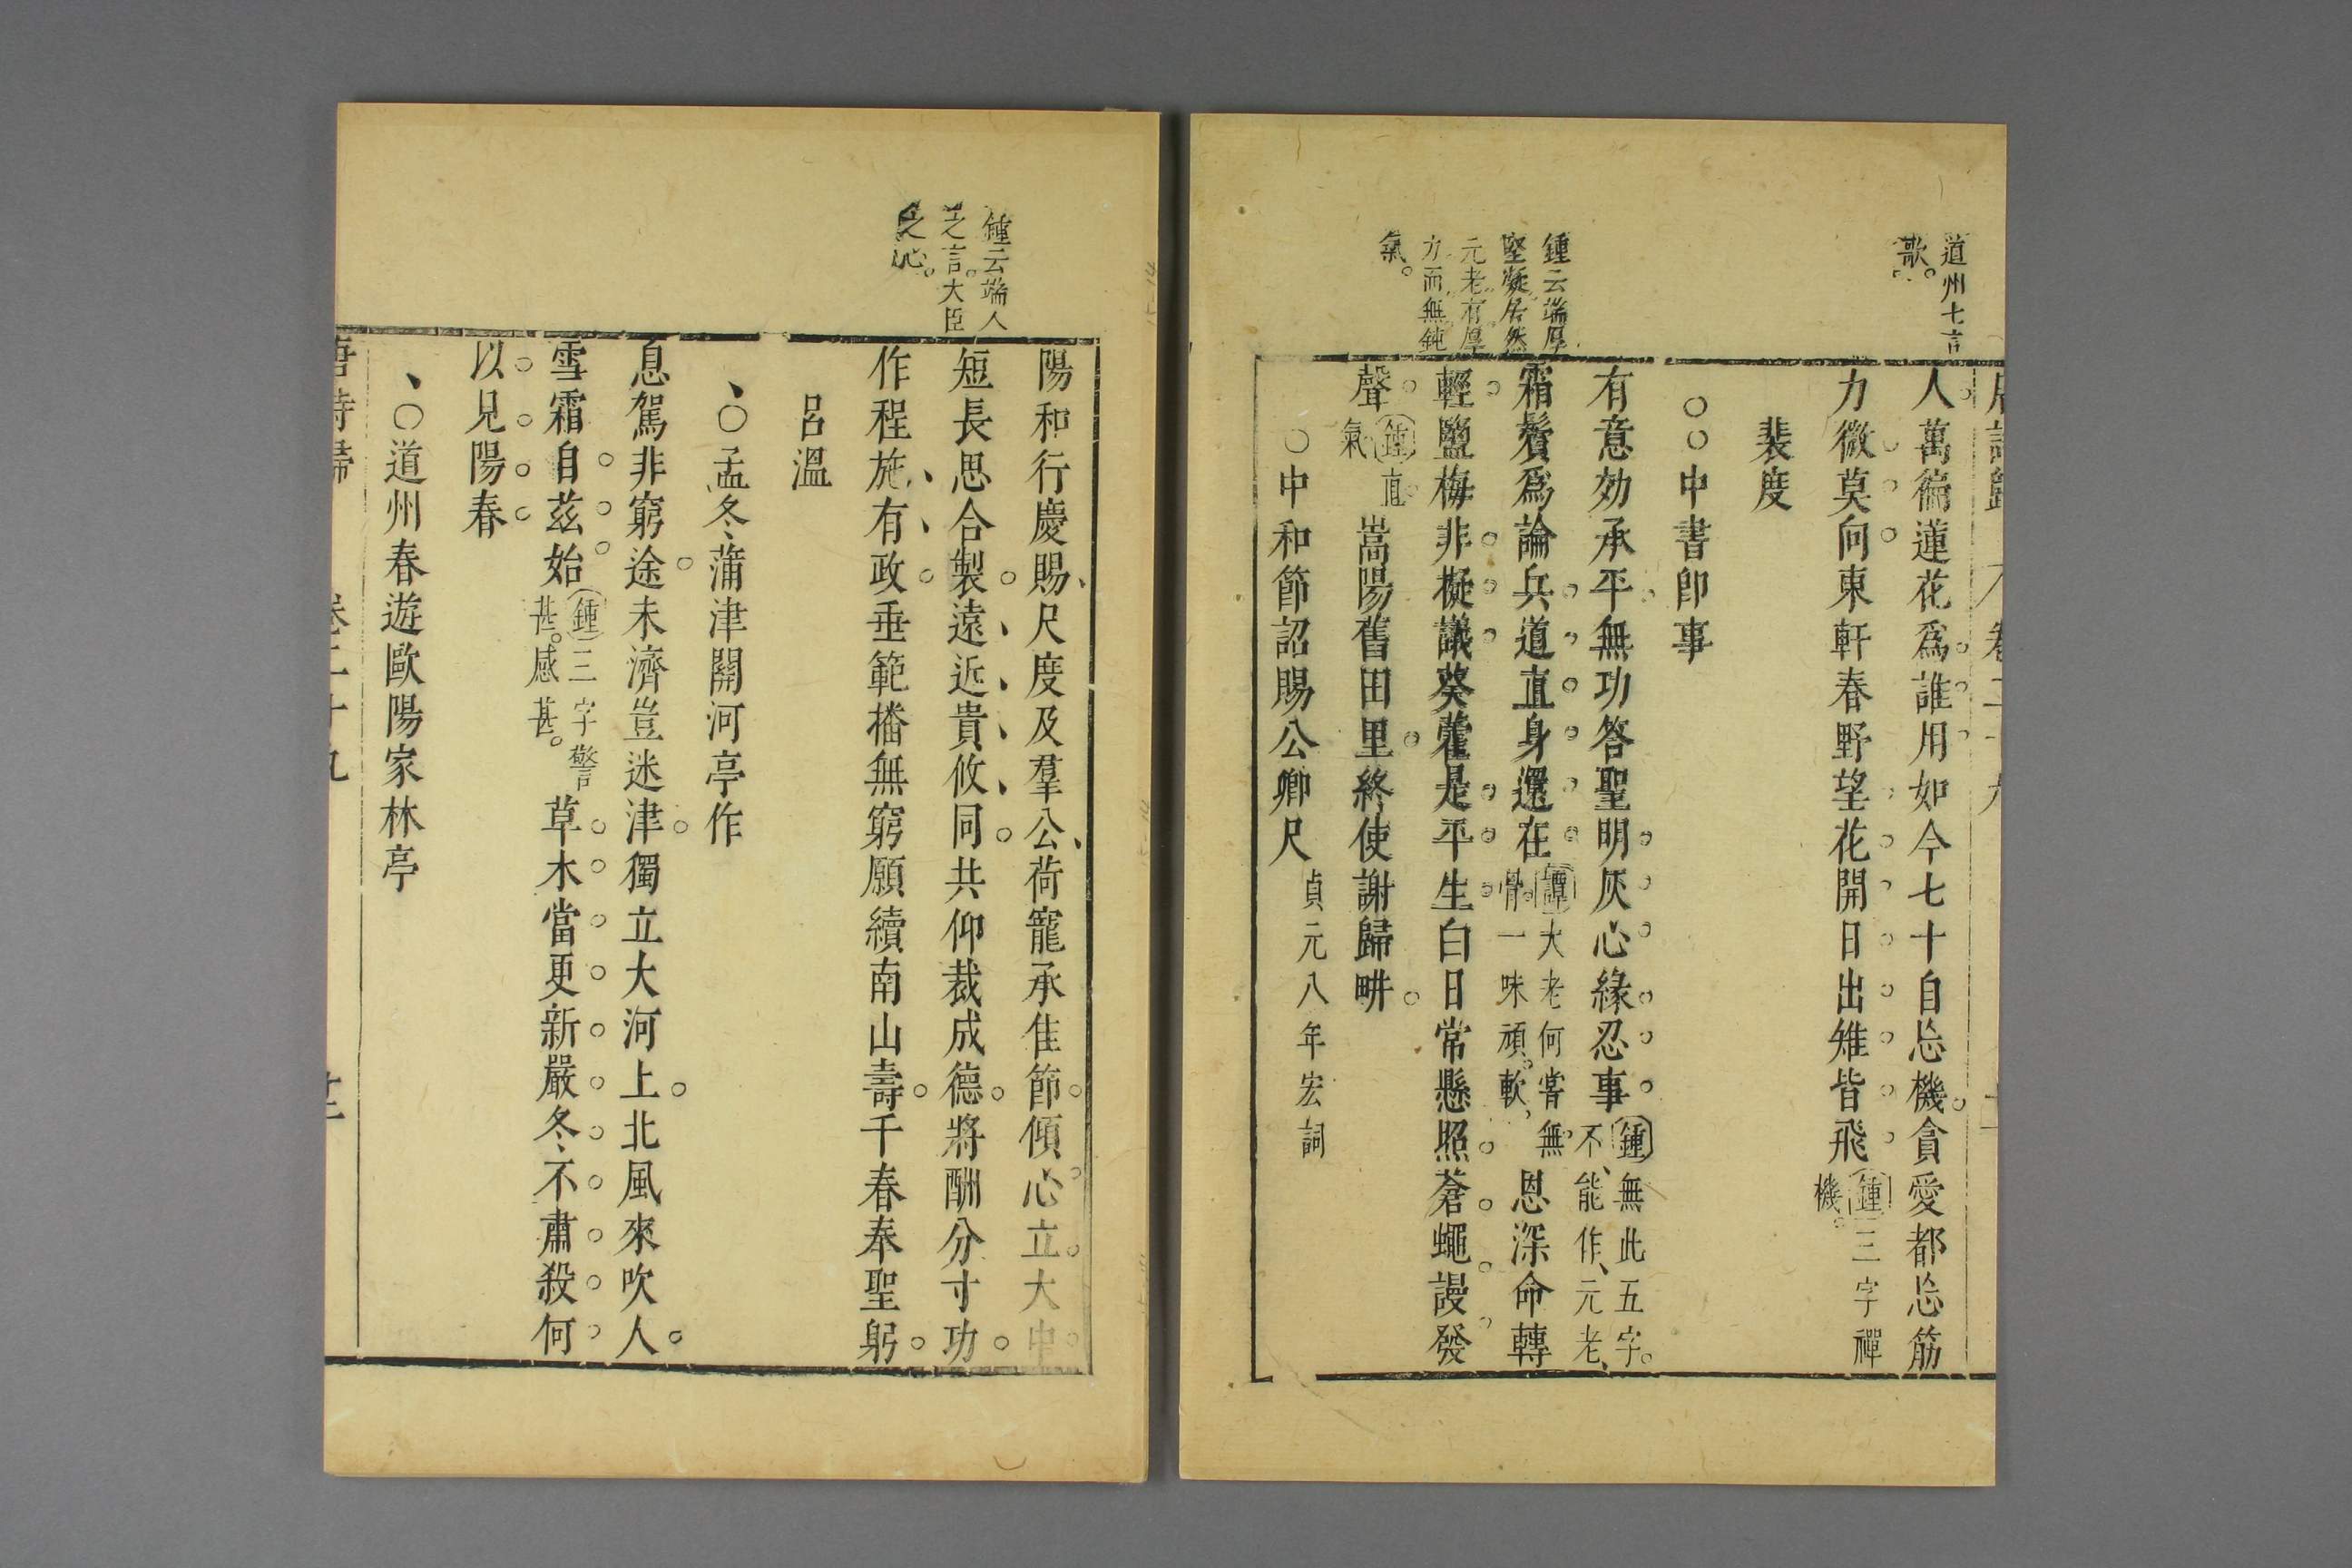 道州七言
歌。
人萬徧蓮花爲誰用如今七十自忘機貪愛都忘筋
力微莫向東軒春野望花開日出雉皆飛鍾三字禪
機。
裴度
○○中書卽事
鍾云端厚
堅凝居然
元老有厚
力而無鈍
氣。
有意効承平無功答聖明灰心緣忍事鍾無此五字。
不能作元老、
霜鬢爲論兵道直身還在譚大老何嘗無
骨。一味頑軟、
恩深命轉
輕鹽梅非擬議葵藿是平生白日常懸照蒼蠅謾發
聲鍾直
氣
嵩陽舊田里終使謝歸畊
○中和節詔賜公卿尺貞元八年宏詞
鍾云端人
之言。大臣
之心。
陽和行慶賜尺度及羣公荷寵承佳節傾心立大中
短長思合製遠近貴攸同共仰裁成德將酬分寸功
作程施有政垂範播無窮願續南山壽千春奉聖躬
呂溫
、○孟冬蒲津關河亭作
息駕非窮途未濟豈迷津獨立大河上北風來吹人
雪霜自茲始鍾三字警
甚。感甚。
草木當更新嚴冬不肅殺何
以見陽春
、○道州春遊歐陽家林亭
唐詩歸 卷二十九 十二